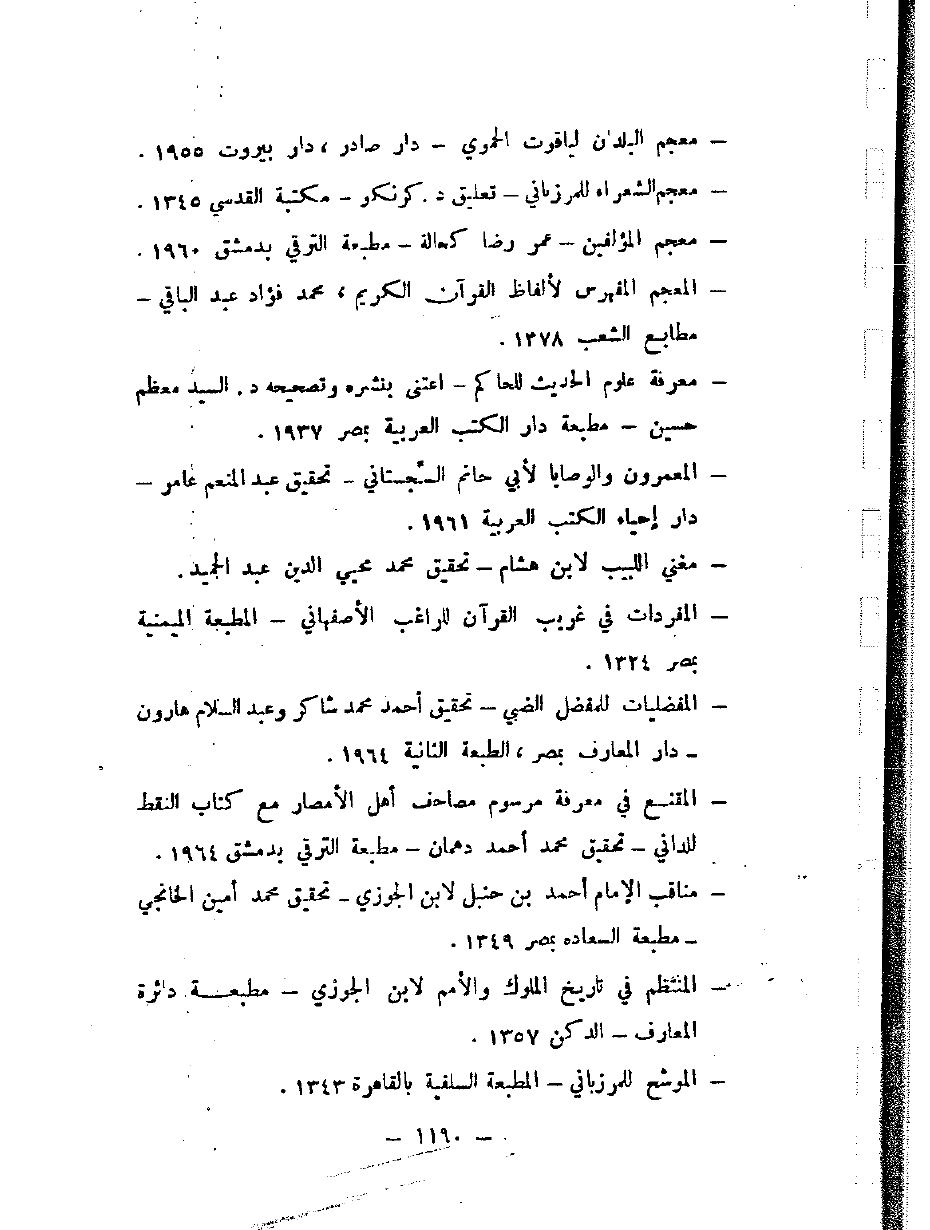 – معجم البلدان لياقوت الحموي – دار صادر ، دار بيروت ١٩٥٥ .
– معجم الشعراء للمرزباني – تعليق د . كرنكو – مكتبة القدسي ١٣٤٥ .
– معجم المؤلفين – عمر رضا كحالة – مطبعة الترقي بدمشق ١٩٦٠ .
– المعجم المفهرس لألفاظ القرآن الكريم ، محمد فؤاد عبد الباقي –
مطابع الشعب ١٣٧٨ .
– معرفة علوم الحديث للحاكم – اعتنى بنشره وتصحيحه د . السيد معظم
حسين – مطبعة دار الكتب العربية بمصر ١٩٣٧ .
– المعمرون والوصايا لأبي حاتم السّجستاني – تحقيق عبد المنعم عامر –
دار إحياء الكتب العربية ١٩٦١ .
– مغني اللبيب لابن هشام – تحقيق محمد محيي الدين عبد الحميد .
– المفردات في غريب القرآن للراغب الأصفهاني – المطبعة الميمنية
بمصر ١٣٢٤ .
– المفضليات للمفضل الضبي – تحقيق أحمد محمد شاكر وعبد السلام هارون
– دار المعارف بمصر ، الطبعة الثانية ١٩٦٤ .
– المقنع في معرفة مرسوم مصاحف أهل الأمصار مع كتاب النقط
للداني – تحقيق محمد أحمد دهمان – مطبعة الترقي بدمشق ١٩٦٤ .
– مناقب الإمام أحمد بن حنبل لابن الجوزي – تحقيق محمد أمين الخانجي
– مطبعة السعاده بمصر ١٣٤٩ .
– المنتظم في تاريخ الملوك والأمم لابن الجوزي – مطبعة دائرة
المعارف – الدكن ١٣٥٧ .
– الموشح للمرزباني – المطبعة السلفية بالقاهرة ١٣٤٣ .
– ١١٩٠ –